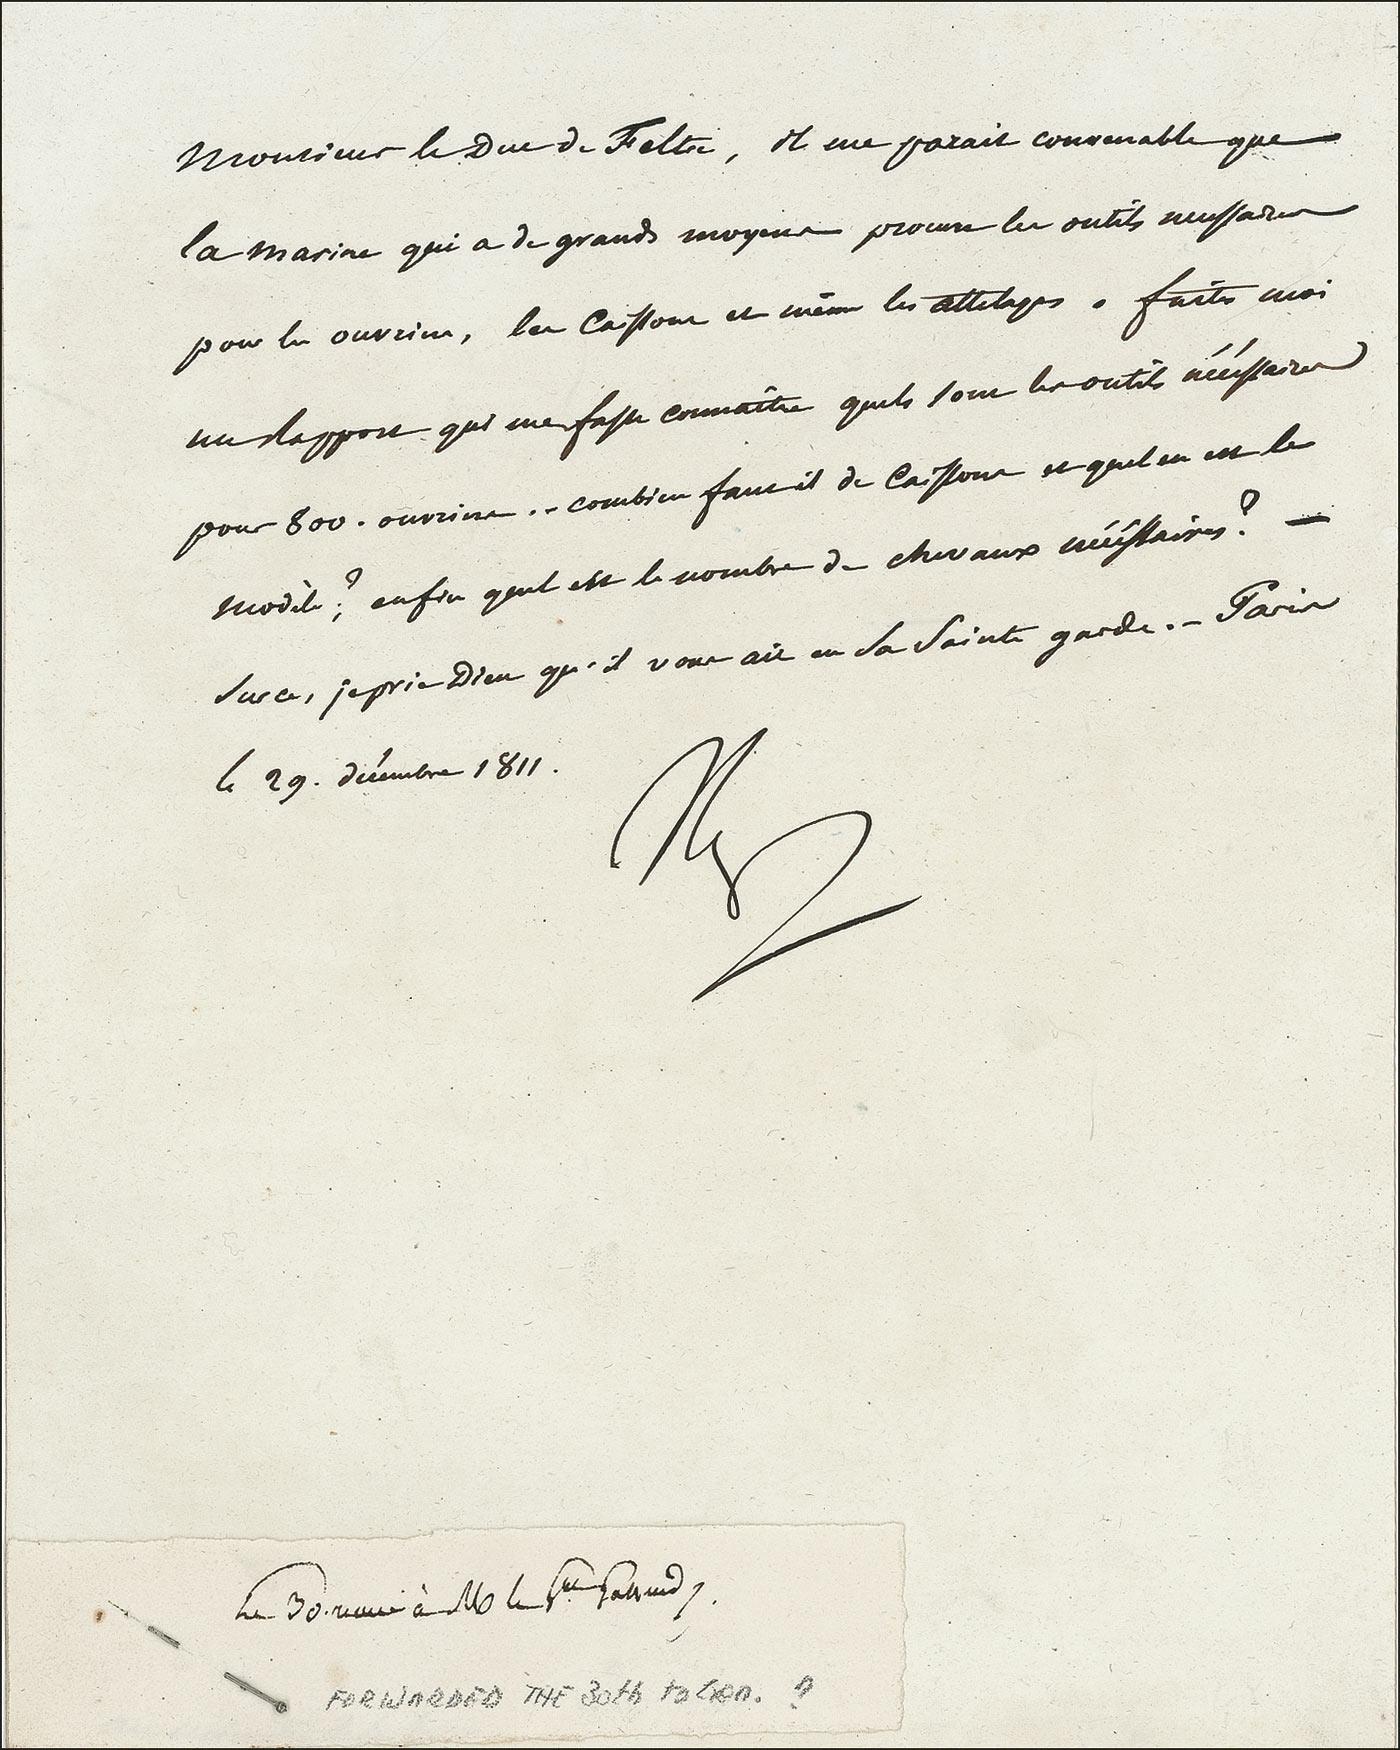 Monsieur le Duc de Feltre, il me parait convenable que
la marine qui a de grands moyens procure les outils necessaires
pour les ouvriers, les Caissons et même les attelages. faites moi
un Rapport qui me fasse connaître quels sont les outils nécéssaires
pour 800. ouvriers .. combien faut il de Caissons et quel en est le
modèle?; enfin quel est le nombre de chevaux nécéssaires? —
Surce, je prie Dieu qu'il vous ait en Sa Sainte garde. - Paris
le 29. décembre 1811.
Np
Le 30. renvoié à M le Gal
FORWARDED THE 30th to Gen. ?